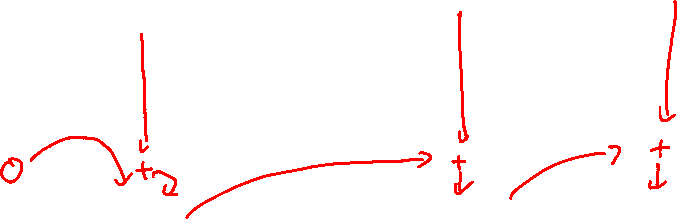 0 + + +